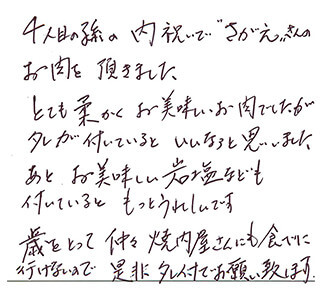 4人目の孫の内祝いで"さがえ"さんの
お肉を頂きました
とても柔かくお美味しいお肉でしたが
タレが付いているといいなぁと思いました
あとお美味しい岩塩なども
付いているともっとうれしいです
歳をとって仲々焼肉屋さんにも食べに
行けないので是非タレ付でお願い致します